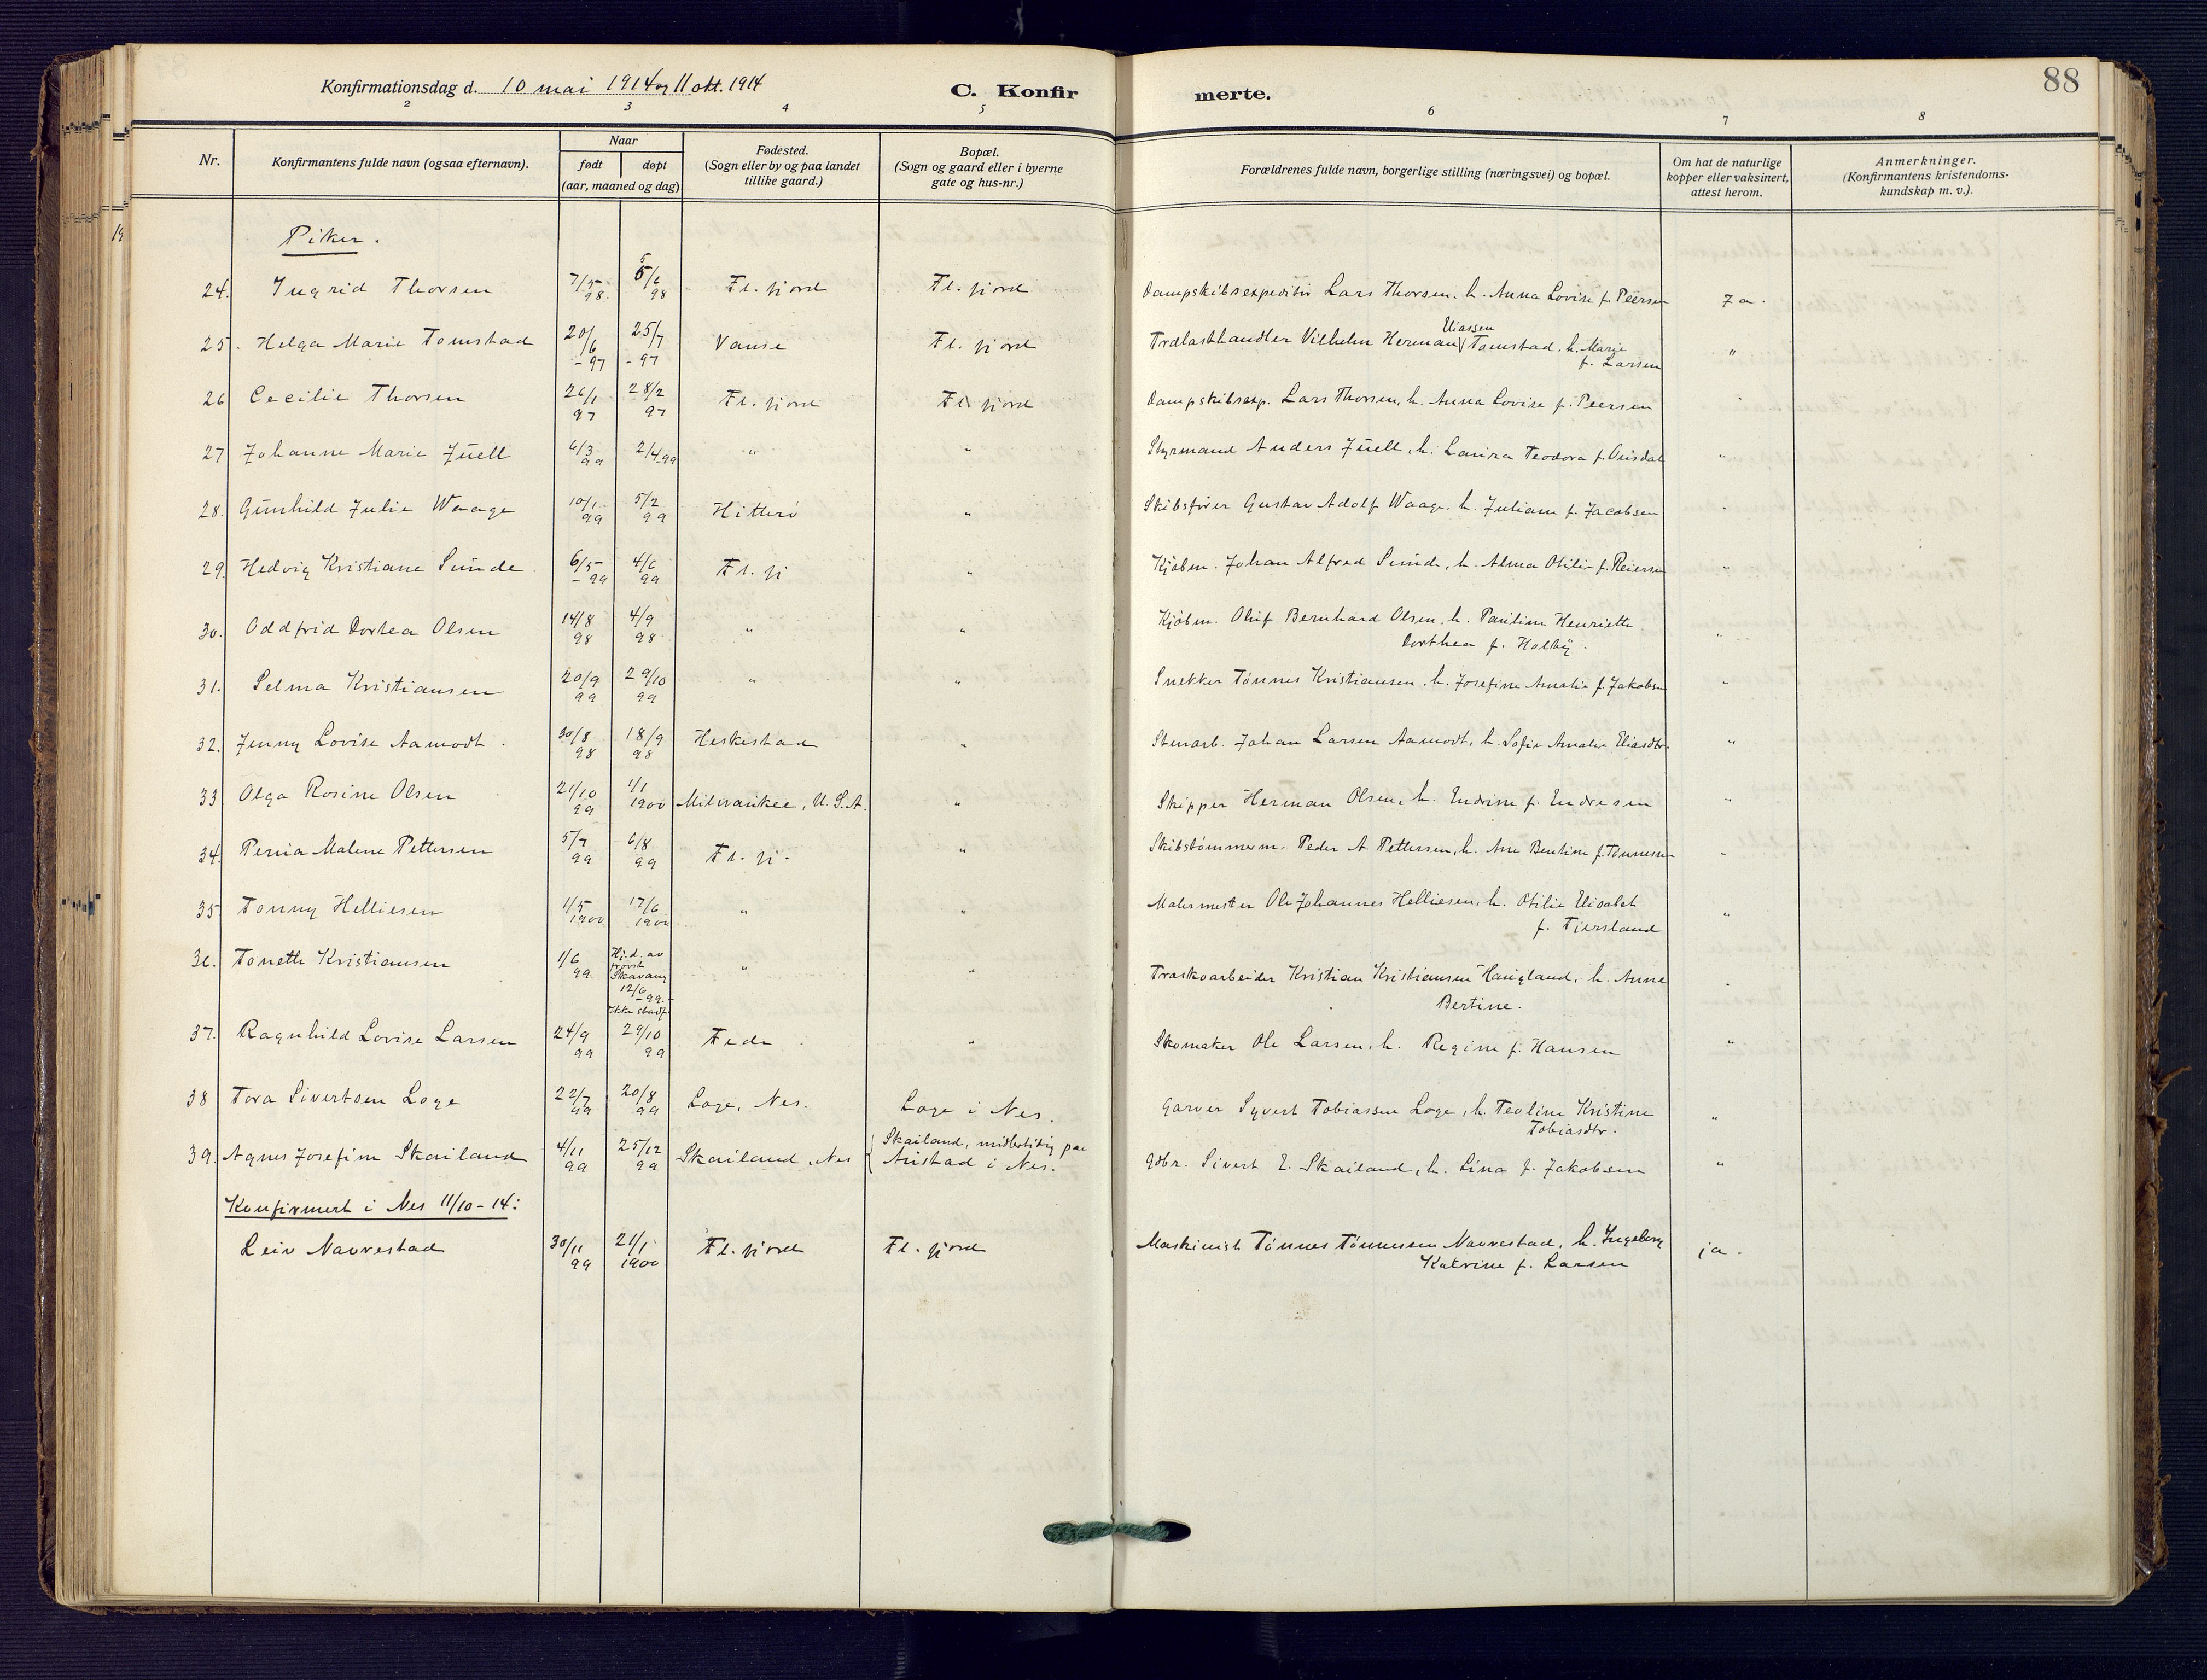 88
Konfirmationsdag d. 10 mai 1914 og 11 okt. 1914
C. Konfirmerte.
2 3 4 5 6 7 8
Nr.
Konfirmantens fulde navn (ogsaa efternavn).
Naar
født døpt
(aar, maaned og dag)
Fødested.
(Sogn eller by og paa landet
tillike gaard.)
Bopæl.
(Sogn og gaard eller i byerne
gate og hus-nr.)
Forældrenes fulde navn, borgerlige stilling (næringsvei) og bopæl.
Om hat de naturlige
kopper eller vaksinert,
attest herom.
Anmerkninger.
(Konfirmantens kristendoms-
kundskap m. v.).
Piker.
24. Ingrid Thorsen 7/5 98. 5/6 98 Fl. fjord Fl. fjord Dampskibsexpeditør Lars Thorsen, h. Anna Lovise f. Peersen Ja.
25. Helga Marie Tomstad 20/6 -97 25/7 -97 Vanse Fl. fjord Trælasthandler Vilhelm Herman Eliassen Tomstad, h. Marie
f. Larsen "
26 Cecilie Thorsen 26/1 97 28/2 97 Fl. fjord Fl. fjord Dampskibsexp. Lars Thorsen, h. Anna Lovise f. Peersen "
27 Johanne Marie Juell 6/3 99 2/4 99 " " Styrmand Anders Juell, h. Laura Teodora f. Ousdal "
28. Gunhild Julie Waage 10/1 99 5/2 99 Hitterø " Skibsfører Gustav Adolf Waage, h. Juliane f. Jacobsen "
29. Hedvig Kristiane Sunde 6/5 -99 4/6 99 Fl. fj " Kjøbm. Johan Alfred Sunde, h. Alma Otilie f. Reiersen "
30. Oddfrid Dortea Olsen 14/8 98 4/9 98 " " Kjøbm. Oluf Bernhard Olsen, h. Pauline Henriette
Dorthea f. Holby. "
31. Selma Kristiansen 20/9 99 29/10 99 " " Snekker Tønnes Kristiansen, h. Josefine Amalie f. Jakobsen "
32. Jenny Lovise Aamodt 30/8 98 18/9 98 Heskestad " Stenarb. Johan Larsen Aamodt, h. Sofie Amalie Eliasdtr. "
33 Olga Rosine Olsen 21/10 99 1/1 1900 Milwaukee, U.S.A. " Skipper Herman Olsen, h. Endrine f. Endresen "
34. Penia Malene Pettersen 5/7 99 6/8 99 Fl. fj. " Skibstømmerm. Peder A. Pettersen, h. Ane Bentine f. Tønnesen "
35 Tonny Helliesen 1/5 1900 17/6 1900 " " Malermester Ole Johannes Helliesen, h. Otilie Elisabet
f. Tjersland "
36. Tonette Kristiansen 1/6 99. Hj.d. av
provst
Skavang
12/6 -99.-
ikke stadf. " " Træskoarbeider Kristian Kristiansen Haugland, h. Anne
Bertine. "
37. Ragnhild Lovise Larsen 24/9 99 29/10 99 Feda " Skomaker Ole Larsen, h. Regine f. Hansen "
38 Tora Sivertsen Loge 22/7 99 20/8 99 Loge, Nes. Loge i Nes. Garver Syvert Tobiassen Loge, h. Teoline Kristine
Tobiasdtr. "
39. Agnes Josefine Skailand 4/11 99 25/12 99 Skailand, Nes Skailand, midlertidig paa
Anistad i Nes. Gdbr. Sivert E. Skailand, h. Lina f. Jakobsen "
Konfirmert i Nes 11/10-14:
Leiv Navrestad 30/11 99 21/1 1900 Fl. fjord Fl. fjord Maskinist Tønnes Tønnessen Navrestad, h. Ingeborg
Katrine f. Larsen ja.